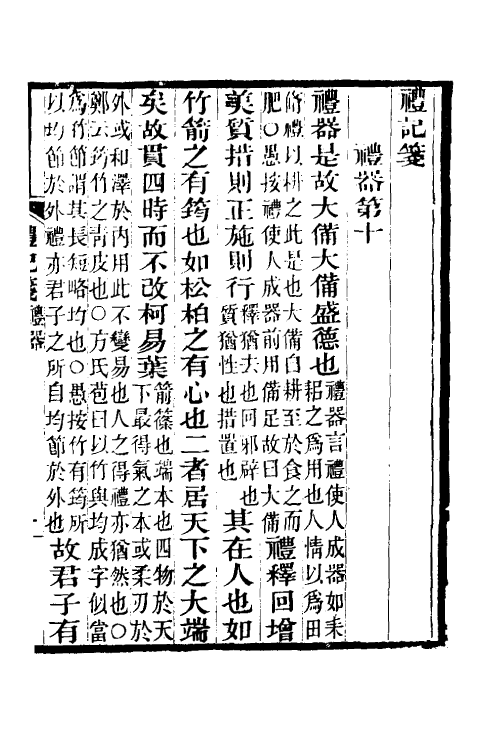 禮記箋
禮器第十
禮器是故大備大備盛德也禮器言禮使人成器如耒
耜之為用也人情以為田
脩禮以耕之此是也大備自耕至於食之而
肥○愚按禮使人成器前用備足故曰大備禮釋回增
美質措則正施則行釋猶去也回邪辟也
質猶性也措置也其在人也如
竹箭之有筠也如松柏之有心也二者居天下之大端
矣故貫四時而不改柯易葉箭篠也端本也四物於天
下最得氣之本或柔刃於
外或和澤於內用此不變易也人之得禮亦猶然也○
鄭云筠竹之青皮也○方氏苞曰以竹與均成字似當
為竹節謂其長短略均也○愚按竹有筠所
以均節於外禮亦君子之所自均節於外也故君子有
禮記箋 禮器